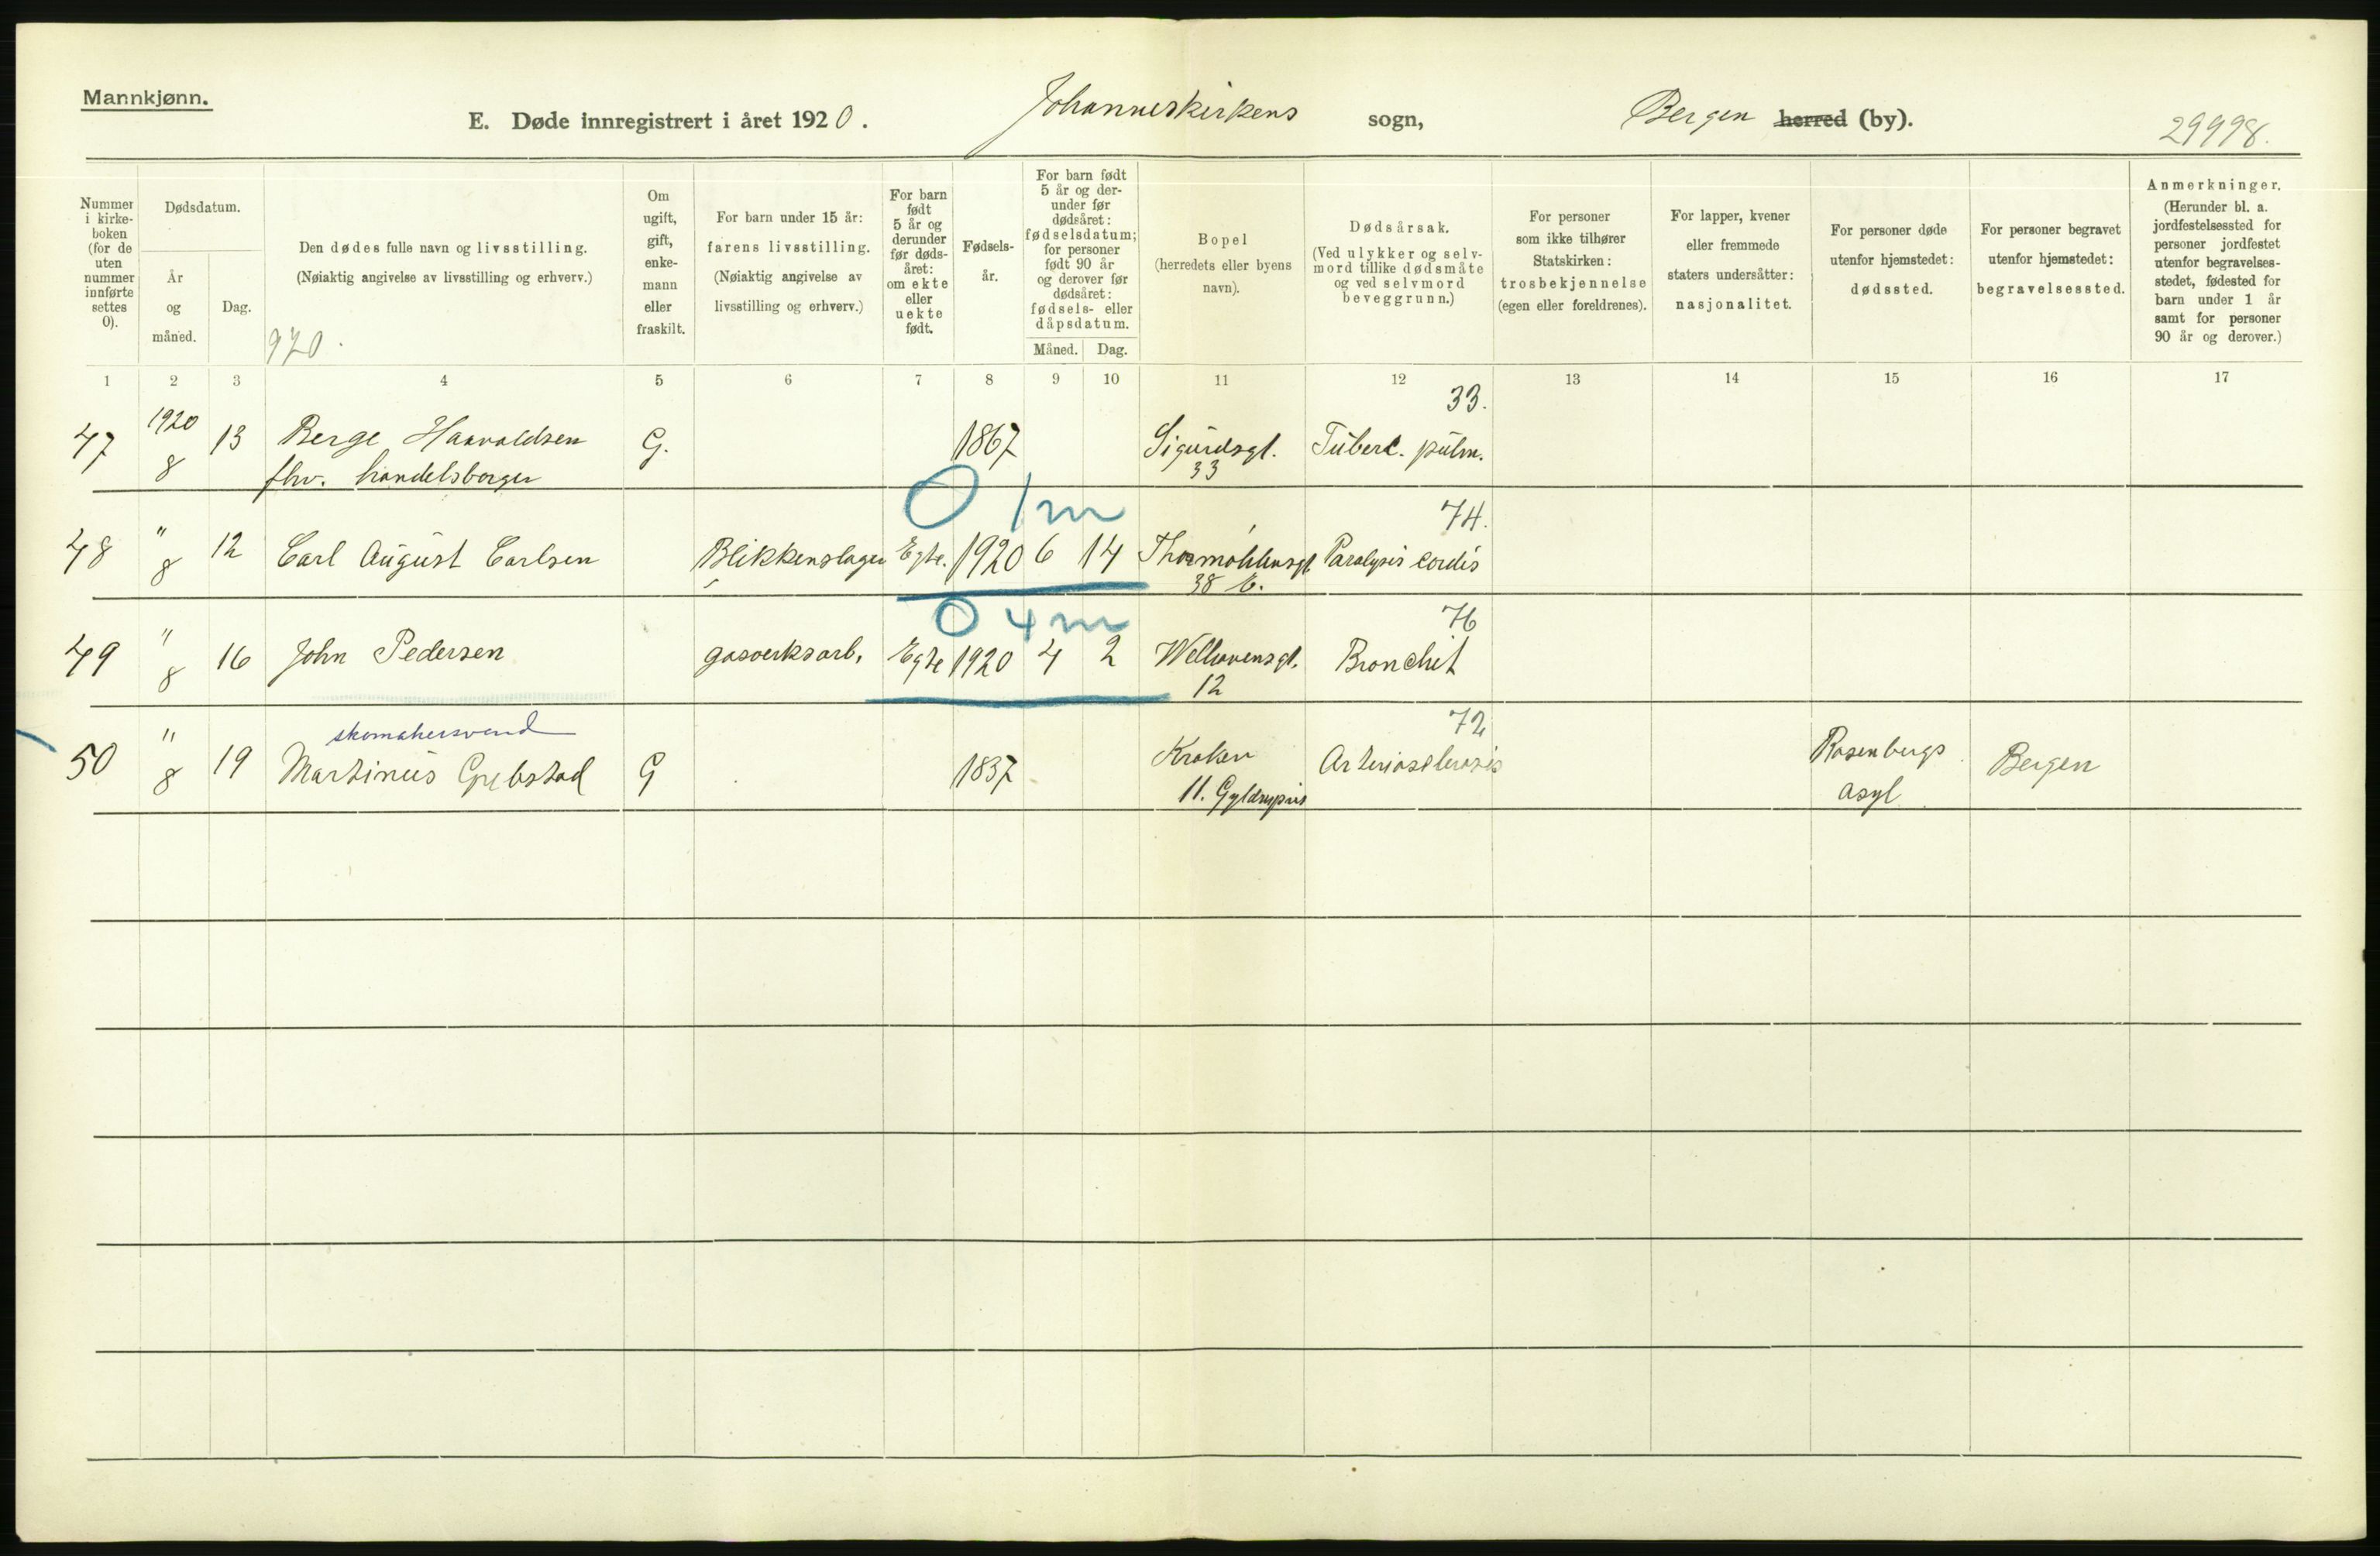 Mannkjønn.
E. Døde innregistrert i året 1920.
Johanneskirkens sogn,
Bergen herred (by).
29998.
Nummer i kirke-boken (for de uten nummer innførte settes 0).
Dødsdatum.
År og måned.
Dag.
Den dødes fulle navn og livsstilling.
(Nøiaktig angivelse av livsstilling og erhverv.)
920.
Om ugift, gift, enke-mann eller fraskilt.
For barn under 15 år:
farens livsstilling.
(Nøiaktig angivelse av
livsstilling og erhverv.)
For barn født 5 år og derunder før døds-året: om ekte eller uekte født.
Fødsels-år.
For barn født 5 år og der-under før dødsåret: fødselsdatum; for personer født 90 år og derover før dødsåret: fødsels- eller dåpsdatum.
Måned. Dag.
Bopel
(herredets eller byens navn).
Dødsårsak.
(Ved ulykker og selv-mord tillike dødsmåte og ved selvmord beveggrunn.)
For personer som ikke tilhører Statskirken: trosbekjennelse (egen eller foreldrenes).
For lapper, kvener eller fremmede staters undersåtter: nasjonalitet.
For personer døde utenfor hjemstedet: dødssted.
For personer begravet utenfor hjemstedet: begravelsessted.
Anmerkninger.
(Herunder bl. a. jordfestelsessted for personer jordfestet utenfor begravelses-stedet, fødested for barn under 1 år samt for personer 90 år og derover.)
1 2 3 4 5 6 7 8 9 10 11 12 13 14 15 16 17
33.
47 1920 8 13 Berge Haavoldsen G. 1867 Sigurdsgt. Tuberc. pulm.
fhv. handelsborger 33
0 1 m 74.
48 " 8 12 Carl August Carlsen Blikkenslager Egte. 1920 6 14 Thormøhlensgt. Paralysis cordis
38 b.
0 4 m 76
49 " 8 16 John Pedersen gasverksarb. Egte 1920 4 2 Welhavensgt. Bronchit
12
skomakersvend 72
50 " 8 19 Martinus G 1837 Kroken Arteriosclerosis Rosenbergs Bergen
11. asyl